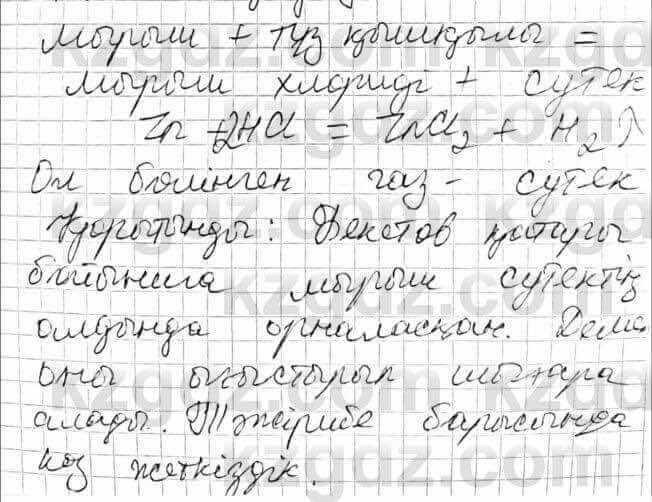 мырыш + тұз қышқылы =
мырыш хлориді + сутек
Zn + 2HCl = ZnCl₂ + H₂↑
Ол бөлінген газ - сутек
Қорытынды: Бекетов қатары
бойынша мырыш сутектің
алдында орналасқан. Деме
оны ығыстырып шығара
алады. Тәжірибе барысында
көз жеткіздік.